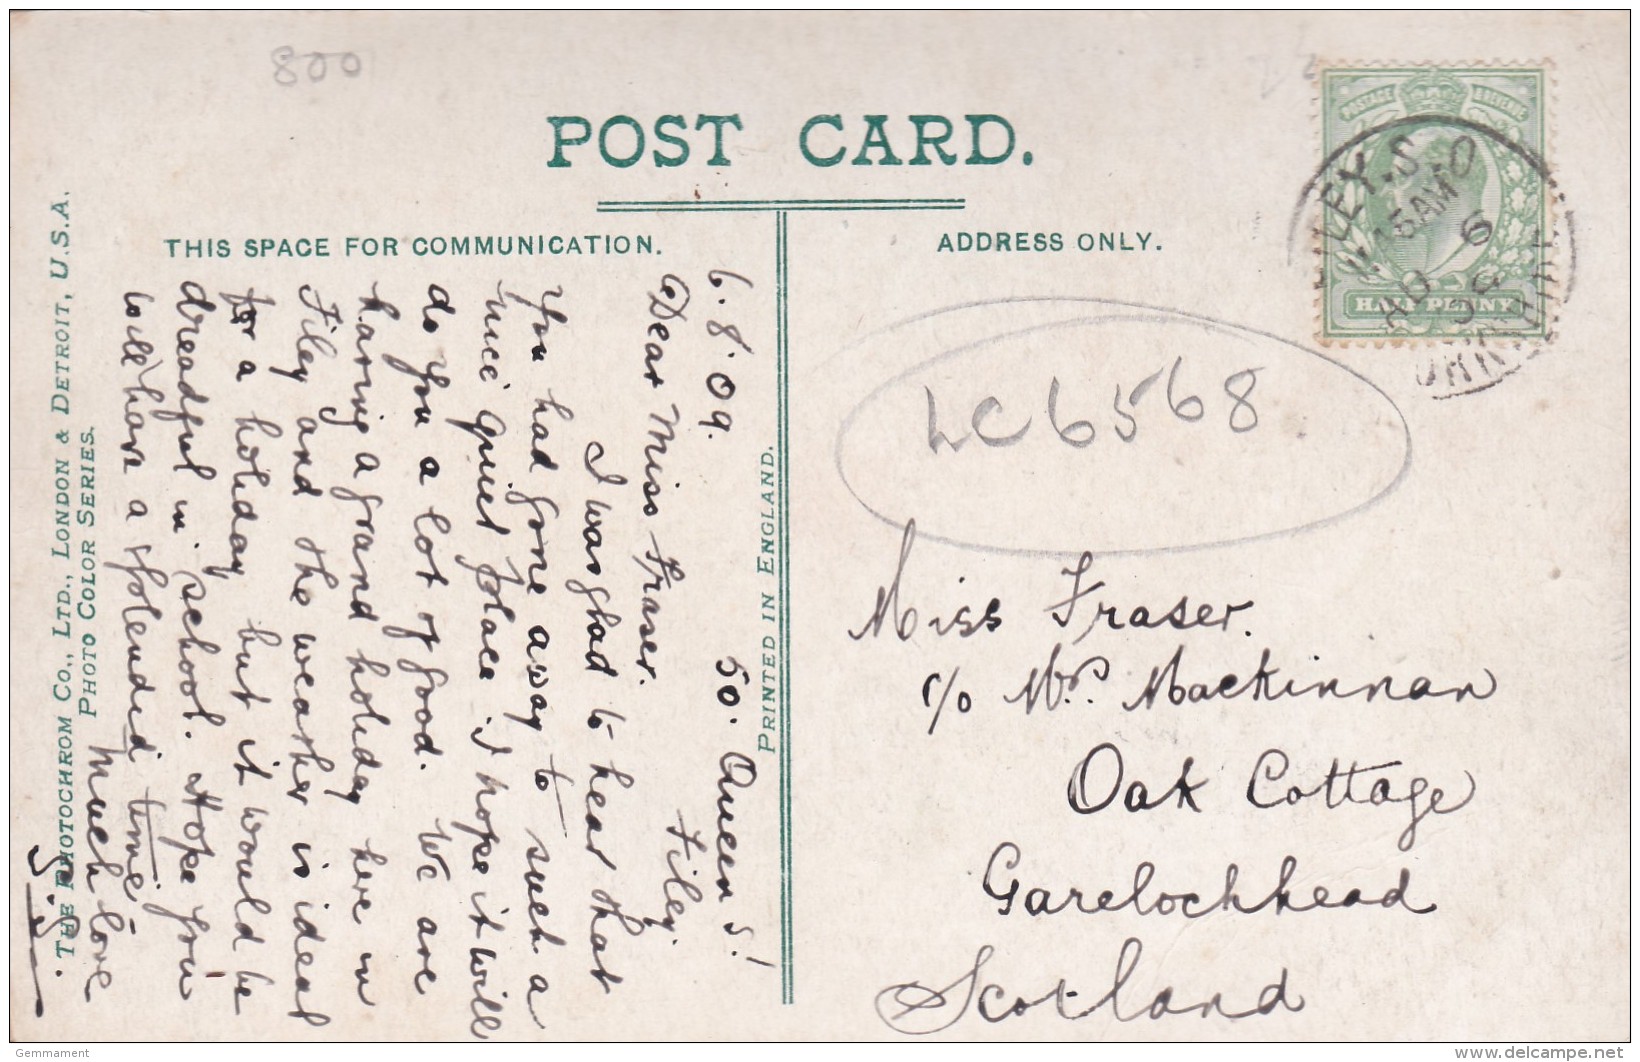 800
POST CARD.
THIS SPACE FOR COMMUNICATION.
ADDRESS ONLY.
6.8.09.
50. Queen S!
Filey.
Dear Miss Fraser.
I was glad to hear that
You had gone away to such a
nice quiet place. I hope it will
do you a lot of good. We are
having a grand holiday here in
Filey and the weather is ideal
for a holiday but it would be
dreadful in school. Hope you
will have a splendid time.
Much love
THE PHOTOCHROM CO., LTD., LONDON & DETROIT, U.S.A.
PHOTO COLOR SERIES.
PRINTED IN ENGLAND.
POSTAGE & REVENUE
HALF PENNY
FILEY.S.O
15AM
AU 6
09
YORKSHIRE
LC6568
Miss Fraser.
c/o Mrs. Mackinnan
Oak Cottage
Garelochhead
Scotland
Gemmament
delcampe.net